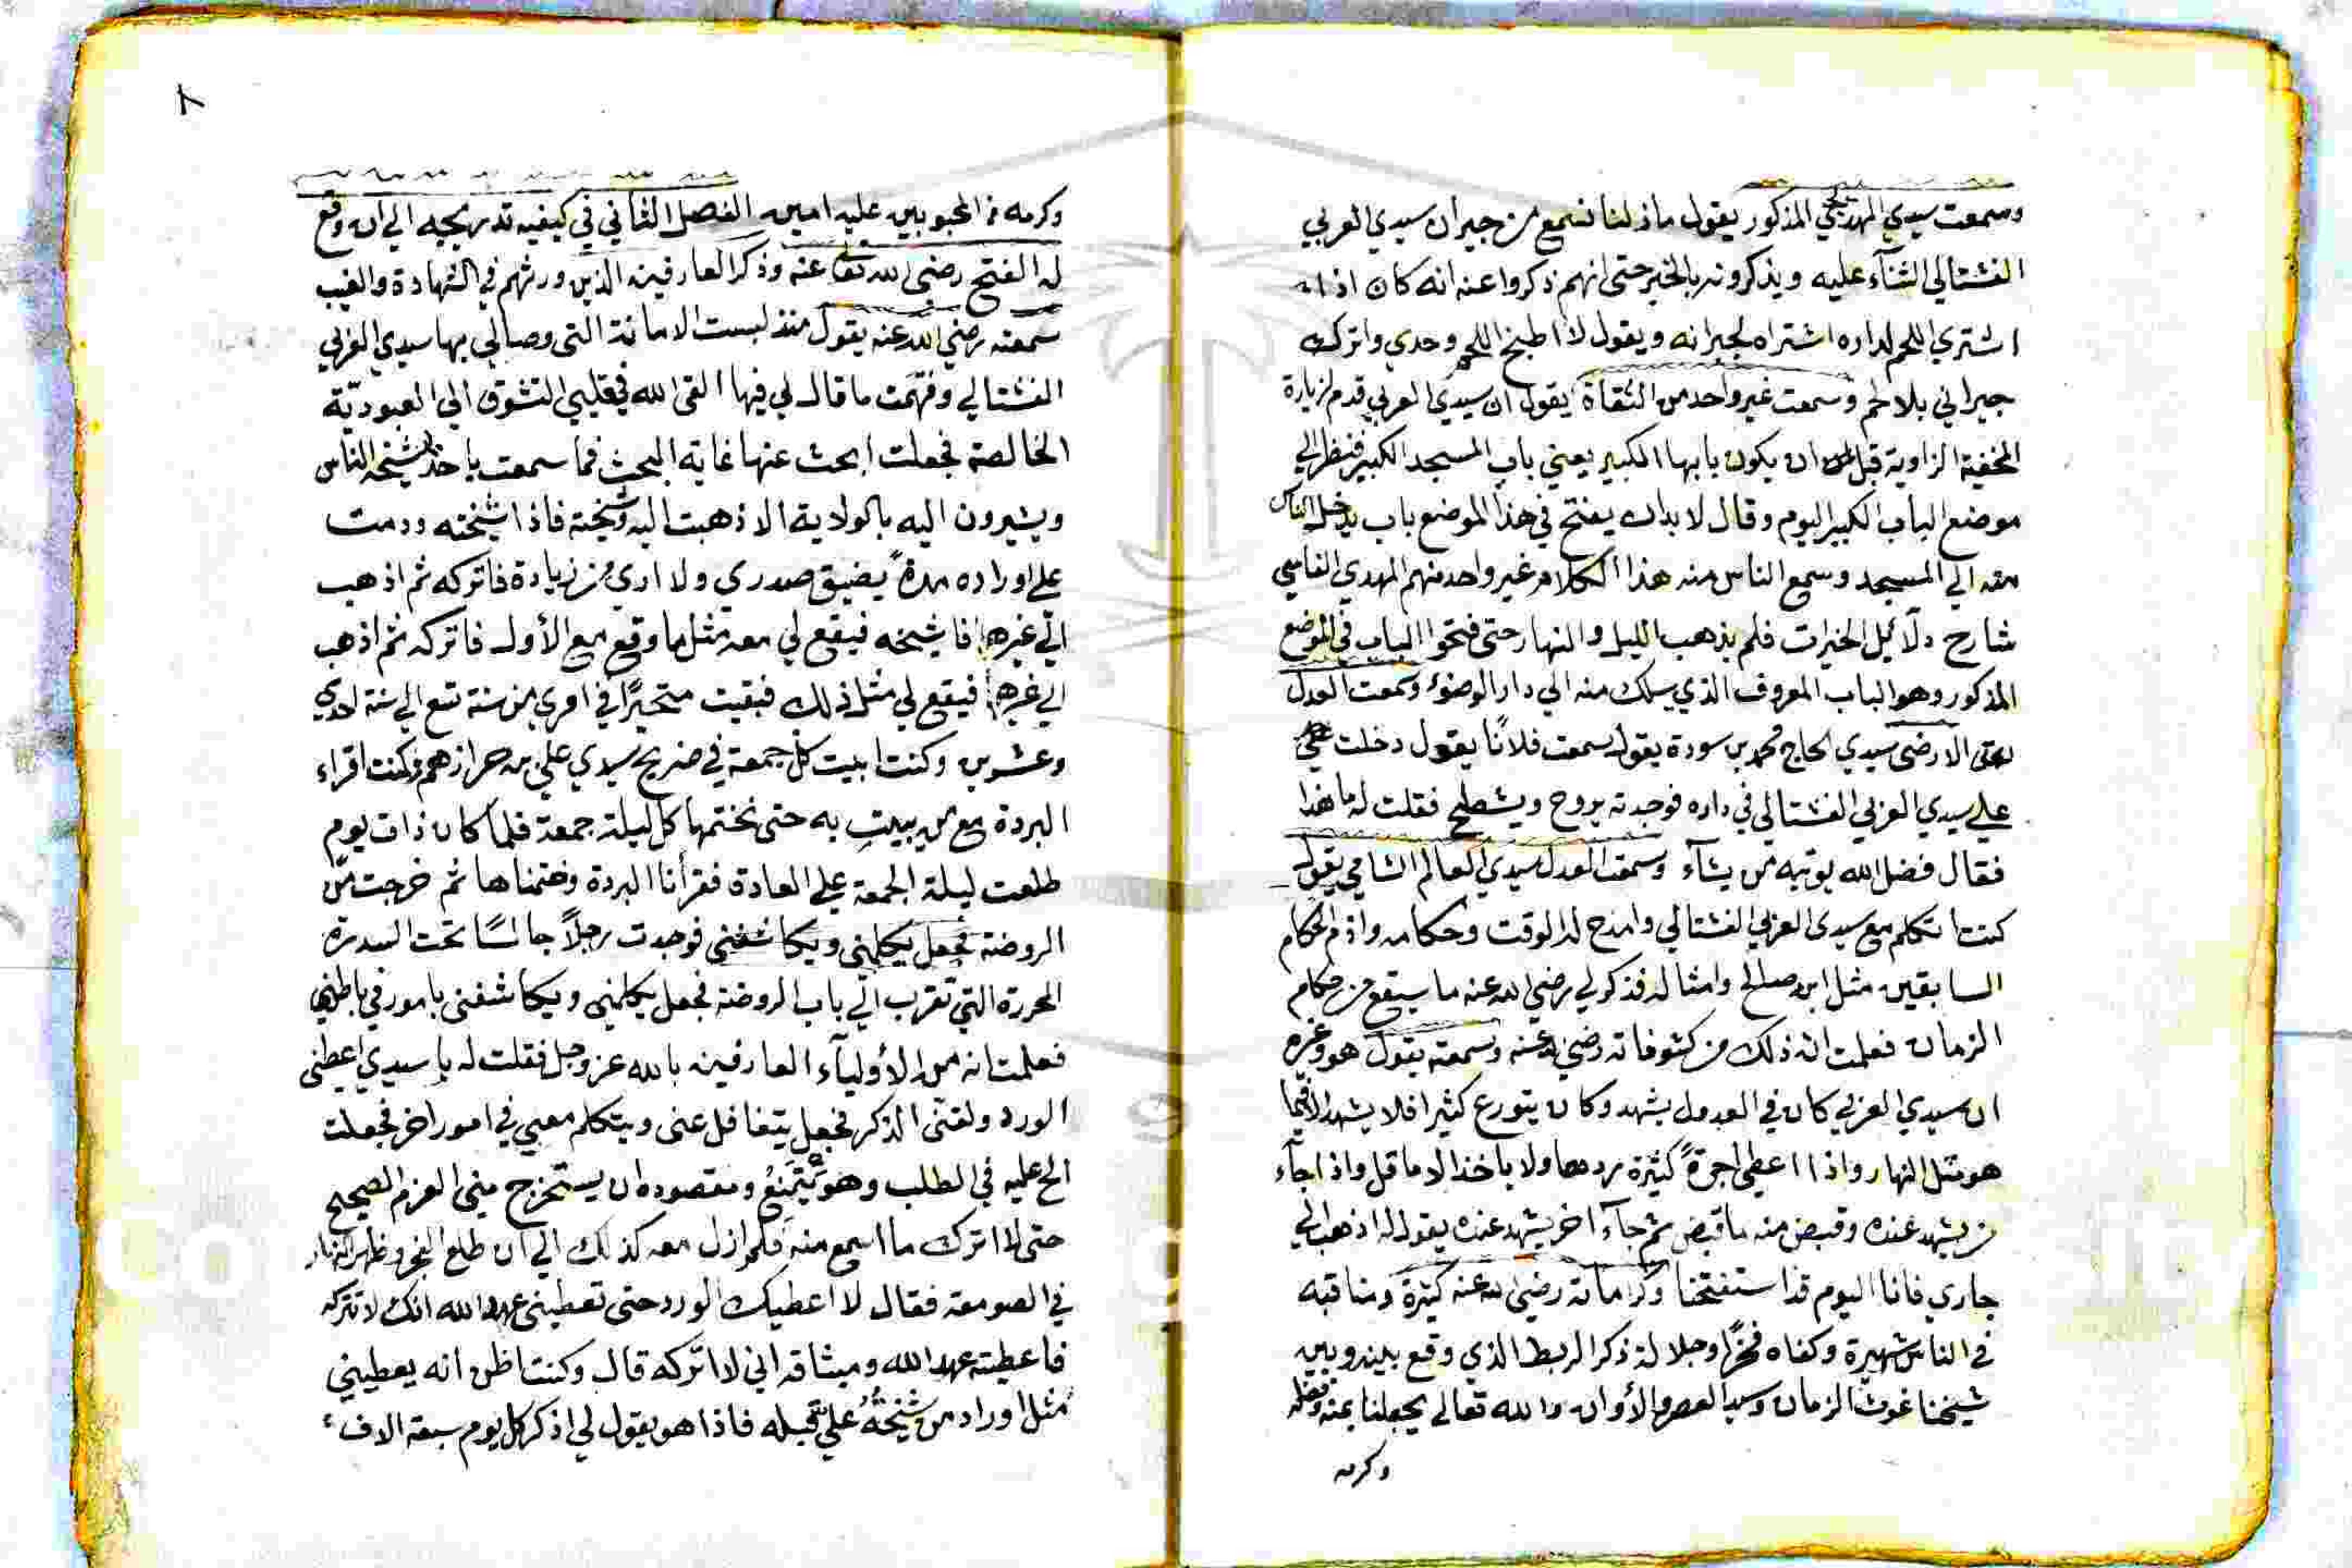 وسمعت سيدي المهدي بن يحيى المذكور يقول مازلنا نسمع من جيران سيدي العربي
الفشتالي الثناء عليه ويذكرونه بالخير حتى انهم ذكروا عنه انه كان اذا
اشتري اللحم لداره اشتراه لجيرانه ويقول لا اطبخ اللحم وحدي واترك
جيراني بلا لحم وسمعت غير واحد من الثقاة يقول ان سيدي العربي قدم لزيارة
المخفية الزاوية قبل ان يكون بابها الكبير يعني باب المسجد الكبير فنظر الي
موضع الباب الكبير اليوم وقال لابد ان يفتح في هذا الموضع باب يدخل الناس
منه الي المسجد وسمع الناس منه هذا الكلام غير واحد منهم المهدي الفاسي
شارح دلائل الخيرات فلم يذهب الليل والنهار حتى فتحوا الباب في الموضع
المذكور وهو الباب المعروف الذي يسلك منه الي دار الوضوء وسمعت العدل
الارضى سيدي الحاج محمد بن سودة يقول سمعت فلانًا يقول دخلت
علي سيدي العربي الفشتالي في داره فوجدته يروح ويشطح فقلت له ما هذا
فقال فضل الله يوتيه من يشآء وسمعت العدل سيدي العالم الشامي يقول
كنت اتكلم مع سيدي العربي الفشتالي وامدح له الوقت وحكامه واذم الحكام
السابقين مثل ابن صالح وامثاله فذكر لي رضي الله عنه ما سيقع من حكام
الزمان فعلمت ان ذلك من كشوفاته رضي الله عنه وسمعته يقول هو وغيره
ان سيدي العربي كان في العدول يشهد وكان يتورع كثيرا فلا يشهد الا فيما
هو مثل النهار واذا اعطي اجرةً كثيرة ردها ولا ياخذ الا ما قل واذا جآء
من يشهد عنده وقبض منه ما قبض ثم جآء اخر يشهد عنده يقول له اذهب الي
جاري فانا اليوم قد استفتحنا وكراماته رضي الله عنه كثيرة ومناقبه
في الناس شهيرة وكفاه فخرًا وجلالة ذكر الربط الذي وقع بينه وبين
شيخنا غوث الزمان وسيد العصر والأوان والله تعالى يجعلنا بمنه وفضله
وكرمه
٨
وكرمه من المحبوبين عليه امين الفصل الثاني في كيفية تدريجيه الي ان وقع
له الفتح رضي الله تعا عنه وذكر العارفين الذين ورثهم في الشهادة والغيب
سمعته رضي الله عنه يقول منذ لبست الامانة التي وصالي بها سيدي العربي
الفشتالي وفهمت ما قال لي فيها القى الله في قلبي التشوق الي العبوديّة
الخالصة فجعلت ابحث عنها غاية البحث فما سمعت باحد شيخه الناس
ويشيرون اليه بالولاية الا ذهبت اليه وشيخته فاذا شيخته ودمت
علي اوراده مدةً يضيق صدري ولا اري من زيادة فاتركه ثم اذهب
الي غيره فاشيخه فيقع لي معه مثل ما وقع مع الأول فاتركه ثم اذهب
الي غيره فيقع لي مثل ذلك فبقيت متحيرًا في امري من سنة تسع الي سنة احدي
وعشرين وكنت ابيت كل جمعة في ضريح سيدي علي بن حرازهم وكنت اقراء
البردة مع من يبيت به حتى نختمها كل ليلة جمعة فلما كان ذات يوم
طلعت ليلة الجمعة علي العادة فقرأنا البردة وختمناها ثم خرجت من
الروضة فجعل يكلمني ويكاشفني فوجدت رجلاً جالسًا تحت السدرة
المحررة التي تقرب الي باب الروضة فجعل يكلمني ويكاشفني بامور في باطني
فعلمت انه من الأوليآء العارفين بالله عز وجل فقلت له يا سيدي اعطني
الورد ولقني الذكر فجعل يتغافل عنى ويتكلم معي في امور اخر فجعلت
الح عليه في الطلب وهو يتمنع ومقصوده ان يستخرج منى العزم الصحيح
حتى لا اترك ما اسمع منه فلم ازل معه كذلك الي ان طلع الفجر وظهر النار
في الصومعة فقال لا اعطيك الورد حتى تعطيني عهد الله انك لا تتركه
فاعطيته عهد الله وميثاقه اني لا اتركه قال وكنت اظن انه يعطيني
مثل اوراد من شيخته علي قبله فاذا هو يقول لي اذكر كل يوم سبعة الاف